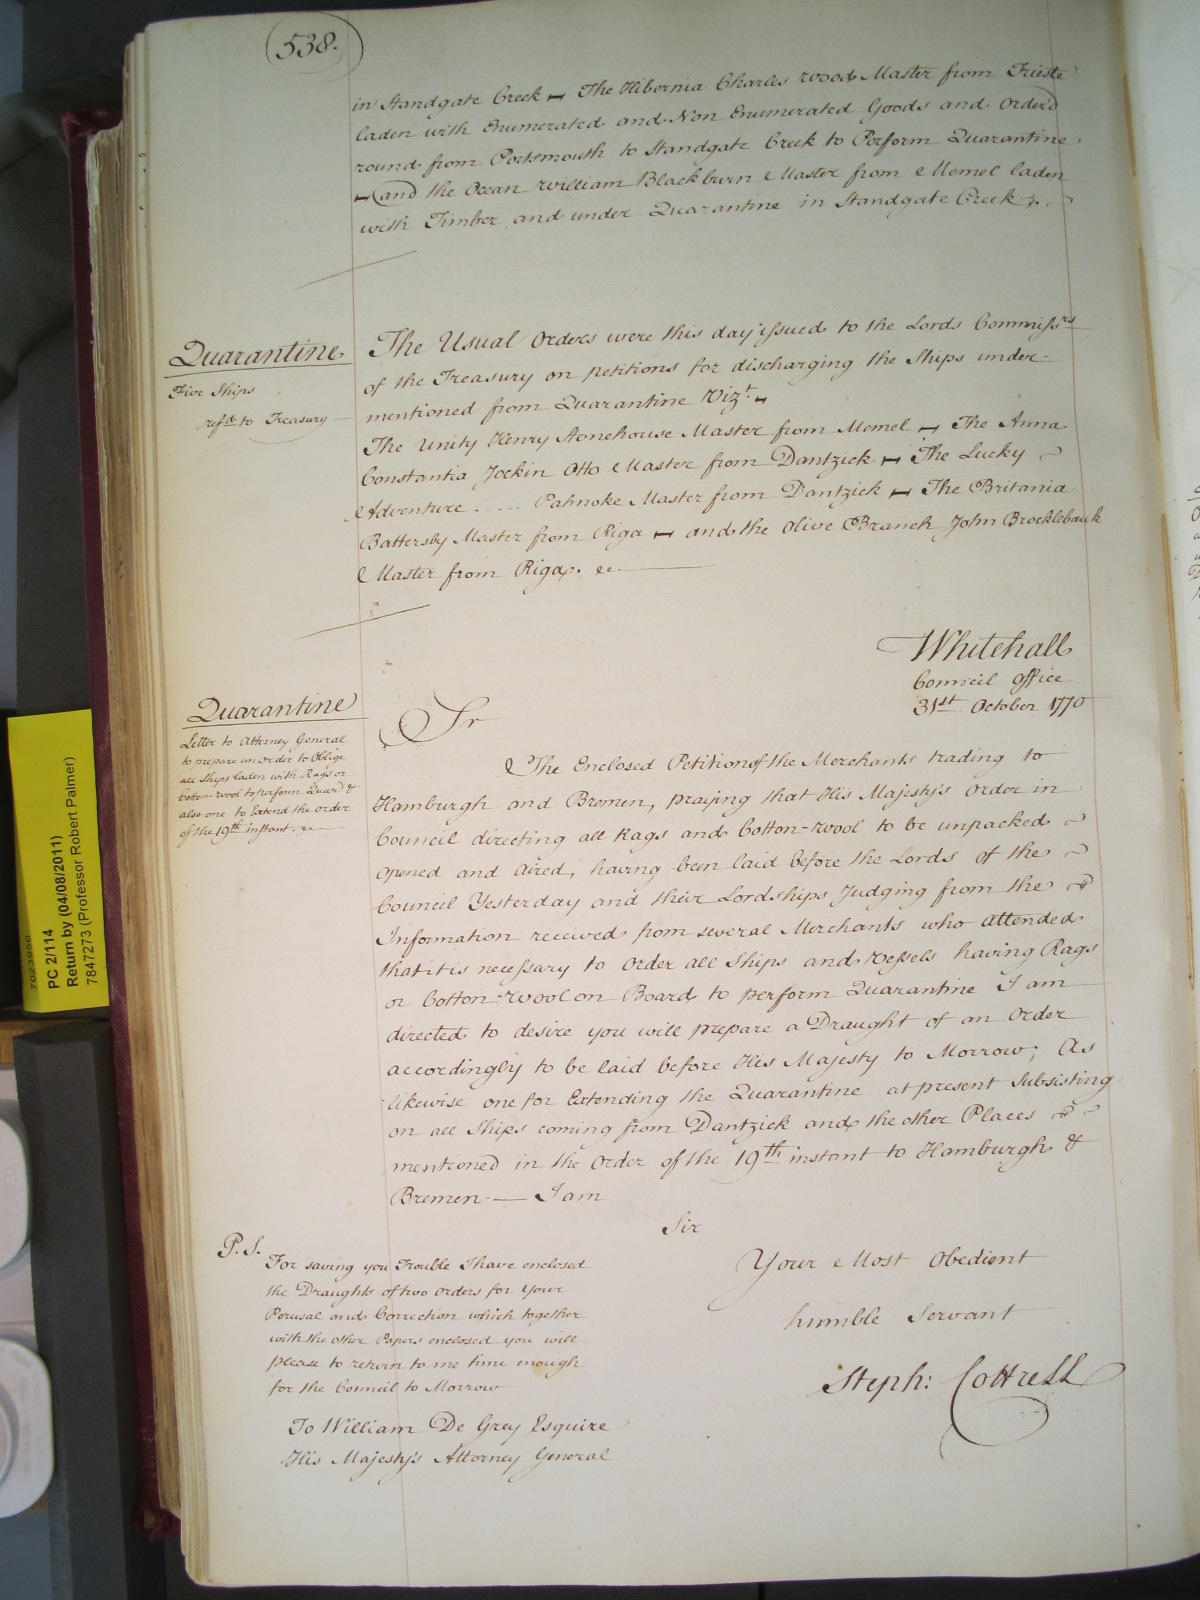 538.
in Standgate Creek – The Hibernia Charles Wood Master from Trieste
laden with Enumerated and Non Enumerated Goods and Order'd
round from Portsmouth to Standgate Creek to Perform Quarantine
– and the Ocean William Blackburn Master from Memel laden
with Timber and under Quarantine in Standgate Creek
Quarantine
Five Ships
refd. to Treasury
The Usual Orders were this day issued to the Lords Commissrs
of the Treasury on petitions for discharging the Ships under-
mentioned from Quarantine Vizt. –
The Unity Henry Stonehouse Master from Memel – The Anna
Constantia Jockin Otto Master from Dantzick – The Lucky
Adventure ..... Pahnoke Master from Dantzick – The Britania
Battersby Master from Riga – and the Olive Branch John Brocklebank
Master from Riga.
Whitehall
Council Office
31st October 1770
Quarantine
Letter to Attorney General
to prepare an order to Oblige
all Ships laden with Rags or
Cotton-wool to perform Quare &
also one to Extend the order
of the 19th instant.
Sir
The Enclosed Petition of the Merchants trading to
Hamburgh and Bremen, praying that His Majesty's Order in
Council directing all Rags and Cotton-Wool to be unpacked
opened and Aired, having been laid before the Lords of the
Council Yesterday and their Lordships Judging from the
Information received from several Merchants who attended
that it is necessary to Order all Ships and Vessels having Rags
or Cotton-Wool on Board to perform Quarantine I am
directed to desire you will prepare a Draught of an Order
accordingly to be laid before His Majesty to Morrow; As
likewise one for Extending the Quarantine at present Subsisting
on all Ships coming from Dantzick and the other Places
mentioned in the Order of the 19th instant to Hamburgh &
Bremen. — I am
Sir
Your Most Obedient
humble Servant
Steph: Cottrell
P.S.
For saving you Trouble I have enclosed
the Draughts of two orders for Your
Perusal and Correction which together
with the other Papers enclosed you will
please to return to me time enough
for the Council to Morrow
To William De Grey Esquire
His Majesty's Attorney General
PC 2/114
Return by (04/08/2011)
7847273 (Professor Robert Palmer)